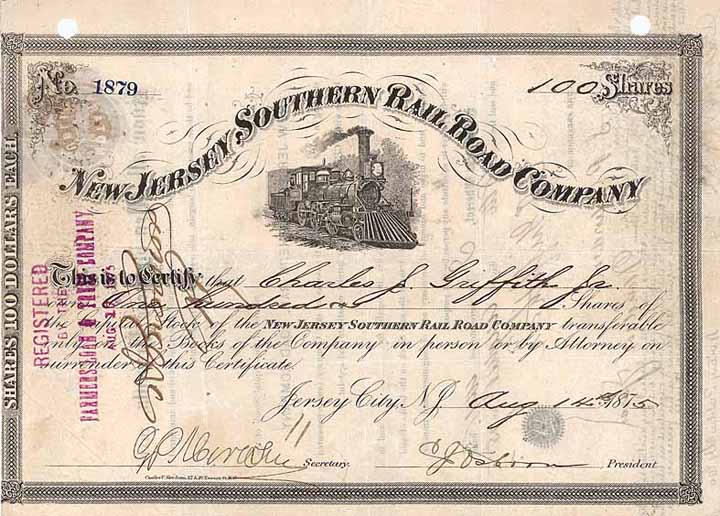 No. 1879
100 Shares
NEW JERSEY SOUTHERN RAIL ROAD COMPANY
This is to Certify that Charles J. Griffith Jr.
One Hundred Shares of
the Capital Stock of the NEW JERSEY SOUTHERN RAIL ROAD COMPANY transferable
only on the Books of the Company in person or by Attorney on
surrender of this Certificate.
Jersey City, N.J. Aug 14th 1875
Secretary.
President
SHARES 100 DOLLARS EACH.
REGISTERED
BY THE
FARMERS LOAN & TRUST COMPANY
AUG